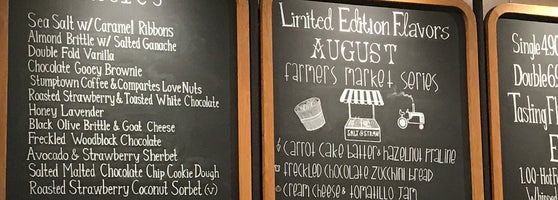 Sea Salt w/ Caramel Ribbons
Almond Brittle w/ Salted Ganache
Double Fold Vanilla
Chocolate Gooey Brownie
Stumptown Coffee & Compartes Love Nuts
Roasted Strawberry & Toasted White Chocolate
Honey Lavender
Black Olive Brittle & Goat Cheese
Freckled Woodblock Chocolate
Avocado & Strawberry Sherbet
Salted Malted Chocolate Chip Cookie Dough
Roasted Strawberry Coconut Sorbet (v)
Limited Edition Flavors
AUGUST
farmers market series
SALT & STRAW
Carrot Cake Batter & Hazelnut Praline
Freckled Chocolate Zucchini Bread
Cream Cheese & Tomatillo Jam
Single 4.90
Double 6
Tasting
Fl
1.00 Hot
Whip